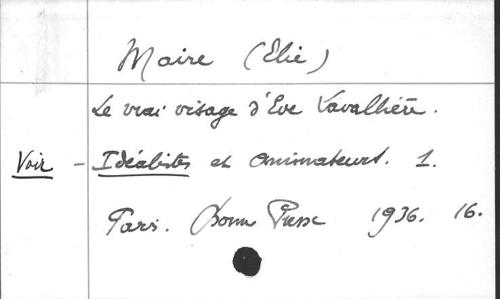 Maire (Elie)
Le vrai visage d'Eve Lavallière.
Voir - Idéalistes et animateurs. 1.
Paris. Bonne Presse 1936. 16.